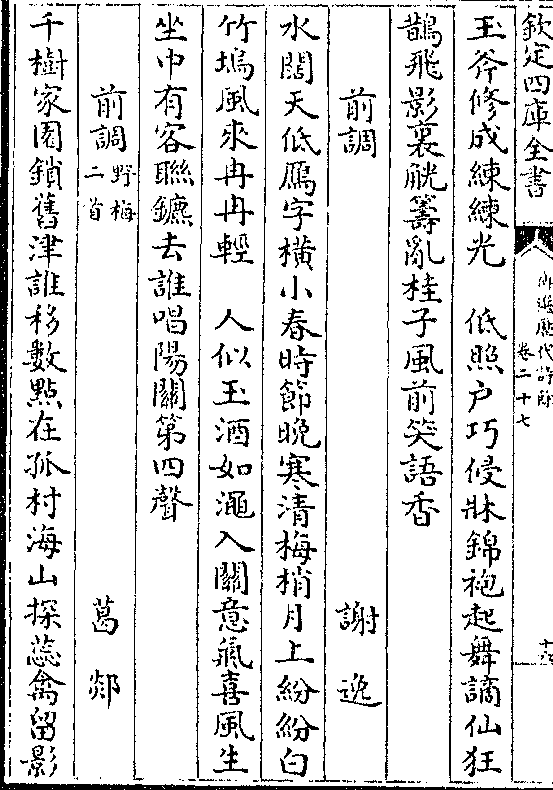 欽定四庫全書
御選歷代詩餘
卷二十七
玉斧修成練練光　低照户巧侵牀錦袍起舞謫仙狂
鵲飛影裏觥籌亂桂子風前笑語香
前調　謝逸
水闊天低鴈字横小春時節晚寒清梅梢月上紛紛白
竹塢風來冉冉輕　人似玉酒如澠入關意氣喜風生
坐中有客聯鑣去誰唱陽關第四聲
前調野梅二首　葛郯
千樹家園鎖舊津誰移數點在孤村海山探蕊禽留影